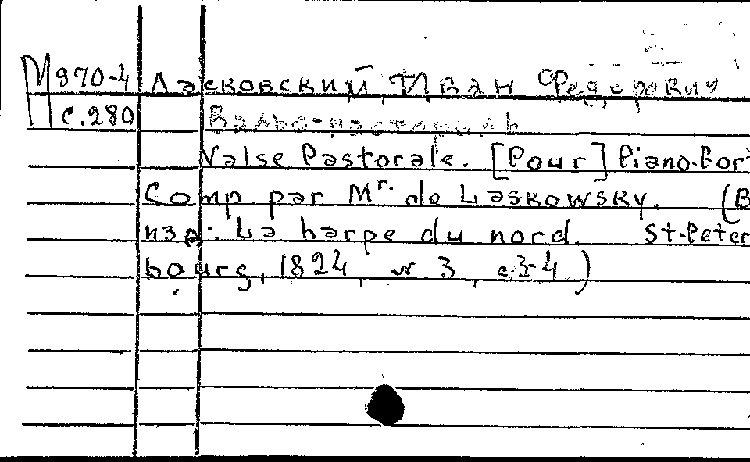 М970-4 Ласковский, Иван Федорович
с.280 Вальс-пастораль
Valse Pastorale. [Pour] Piano-For
Comp par Mr. de Laskowsky. (В
изд: La harpe du nord. St-Peter
bourg, 1824, № 3, с.3-4)